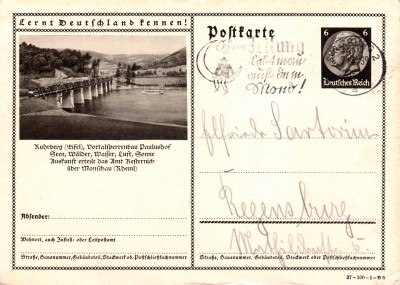 Lernt Deutschland kennen!
Ruhrberg (Eifel), Vortalsperrenbau Paulushof
Seen, Wälder, Wasser, Luft, Sonne
Auskunft erteilt das Amt Kesternich
über Monschau (Rheinl)
Absender:
Wohnort, auch Zustell- oder Leitpostamt
Straße, Hausnummer, Gebäudeteil, Stockwerk od. Postschließfachnummer
Postkarte
Ohne Zeitung
lebt man
auf dem
Mond!
6 6
Deutsches Reich
Alfriede Sartorius
Regensburg
5
Straße, Hausnummer, Gebäudeteil, Stockwerk oder Postschließfachnummer
37-106-1-B6